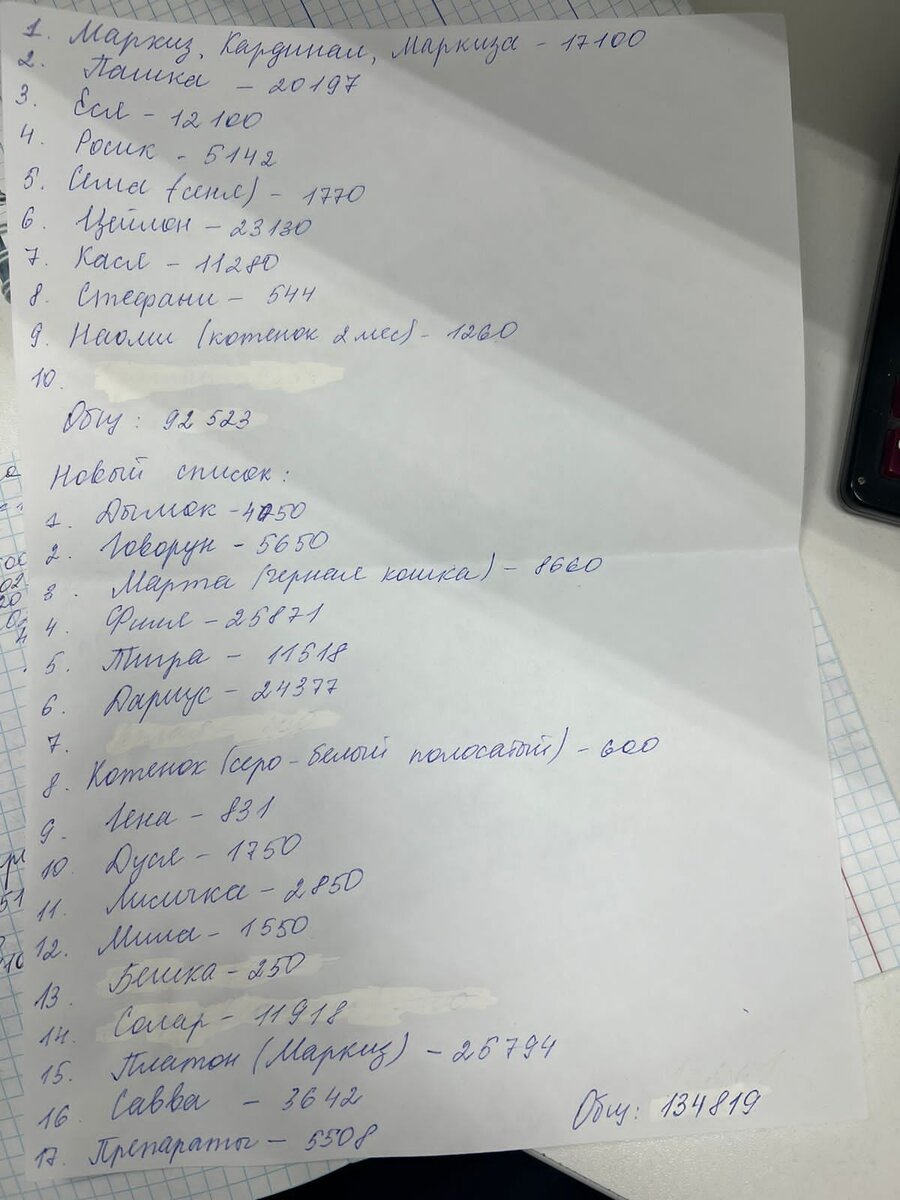 1. Маркиз, Кардинал, Маркиза - 17100
2. Пашка - 20197
3. Еся - 12100
4. Росик - 5142
5. Сема (сеня) - 1770
6. Цейлон - 23130
7. Кася - 11280
8. Стефани - 544
9. Наоми (котенок 2 мес) - 1260
10.
Общ: 92523
Новый список:
1. Дымок - 4050
2. Говорун - 5650
3. Марта (черная кошка) - 8660
4. Филя - 25871
5. Тигра - 11518
6. Дариус - 24377
7.
8. Котенок (серо-белый полосатый) - 600
9. Гена - 831
10. Дуся - 1750
11. Лисичка - 2850
12. Мила - 1550
13. Бешка - 250
14. Солар - 11918
15. Платон (Маркиз) - 25794
16. Савва - 3642
Общ: 134819
17. Препараты - 5508